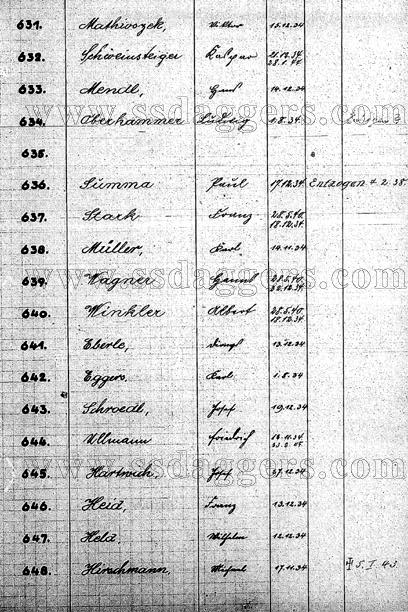 631. Mathivszek, Viktor 15.12.34
632. Schweinsteiger Kaspar 21.12.34.
28.1.
633. Mendl, Hans 14.12.34
www.ssdaggers.com
634. Oberhammer Ludwig 1.8.34
635.
636. Summa Paul 17.12.34. Entzogen 2. 38.
637. Stark Franz 28.5.40.
18.12.34.
638. Müller, Karl 14.11.34
www.ssdaggers.com
639. Wagner 28.5.40.
34.
640. Winkler Albert 28.5.40.
18.12.34.
641. Eberle, 13.12.34
642. Eggers, Karl 1.8.34
643. Schroedl, Josef 19.12.34
644. Ullmann Friedrich 16.11.34
www.ssdaggers.com
645. Hartwich, Josef 27.12.34
646. Heid, Franz 13.12.34
647. Held, Wilhelm 12.12.34
648. Hirschmann, Michael 17.11.34 5. I. 43